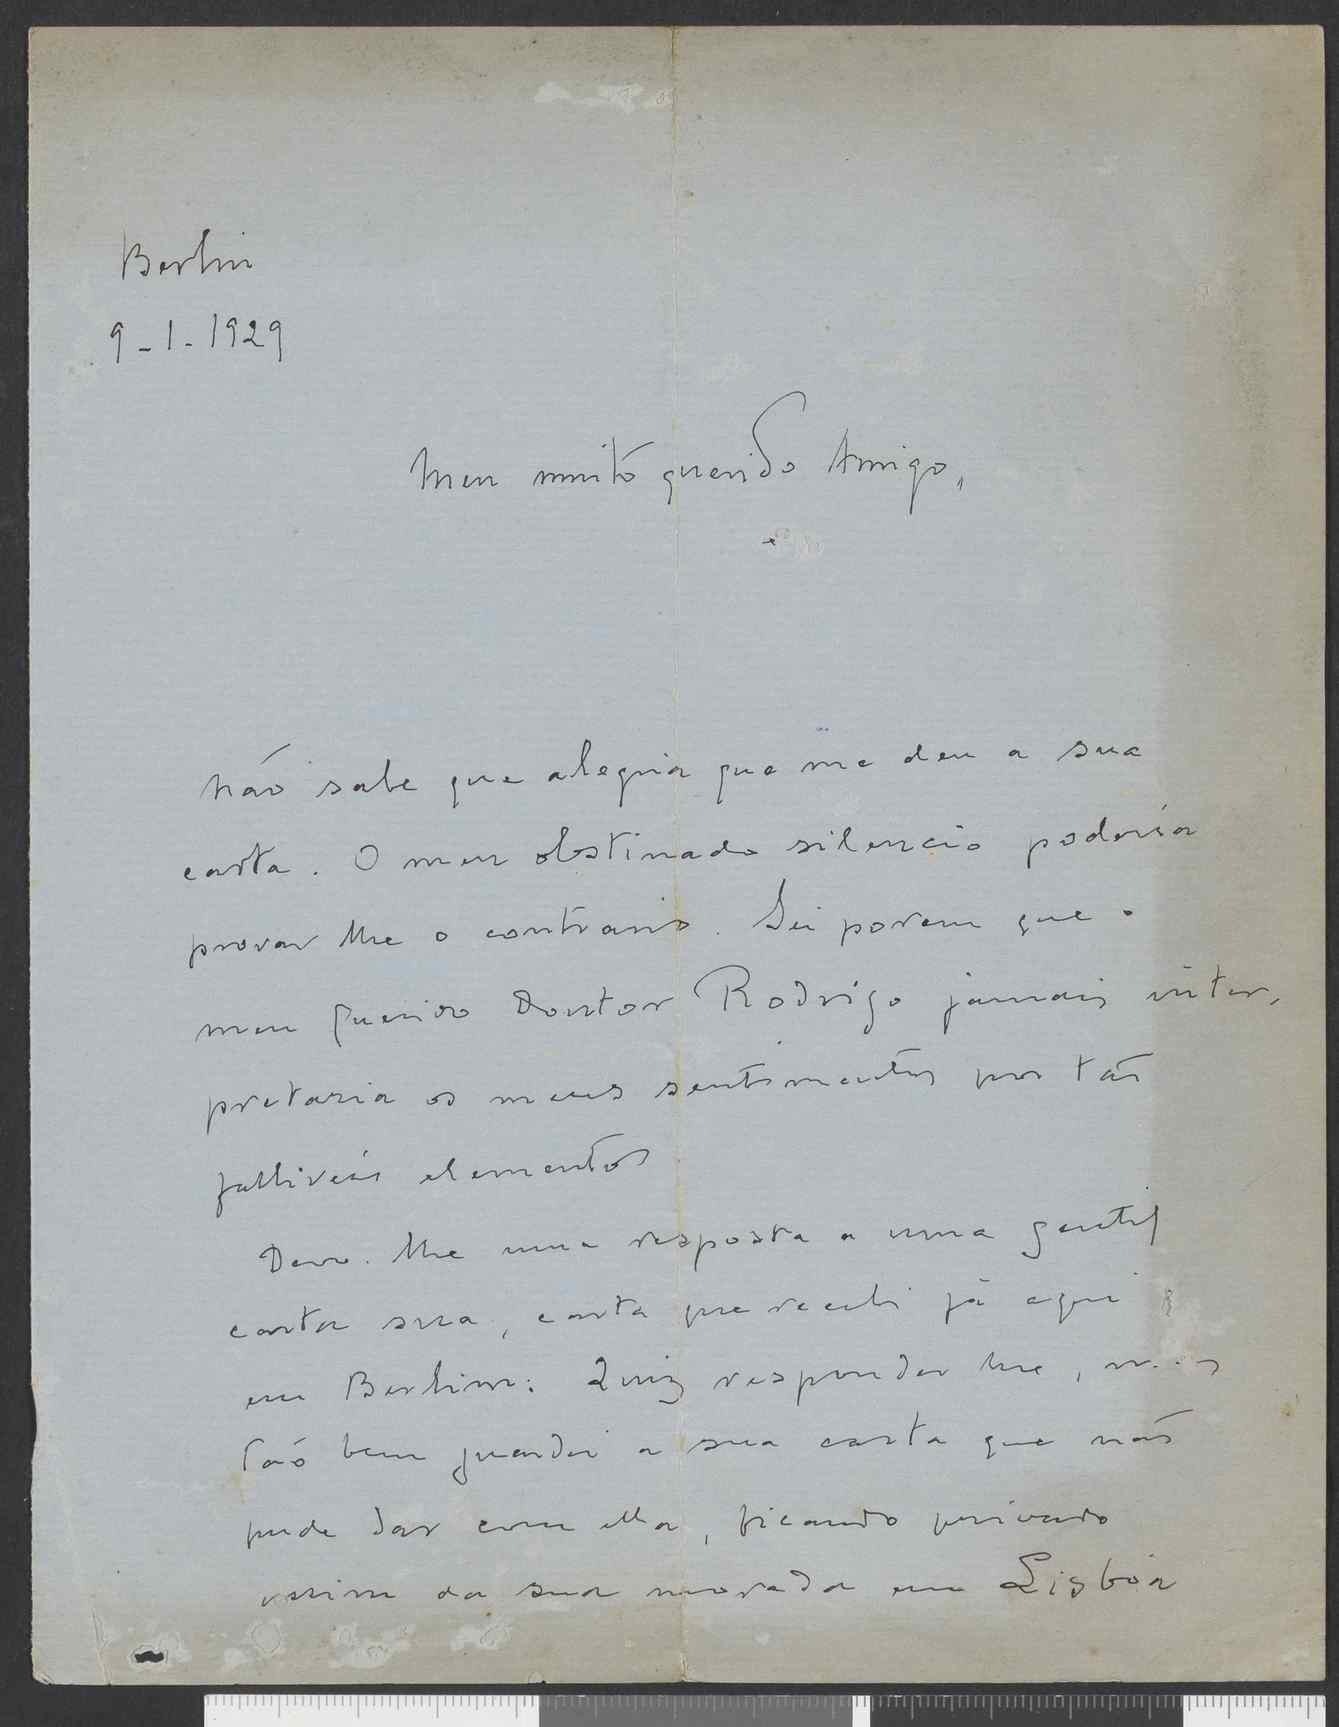 Berlin
9-1-1929
Meu muito querido Amigo,
Não sabe que alegria que me deu a sua
carta. O meu obstinado silencio poderia
provar lhe o contrario. Sei porem que o
meu querido Doutor Rodrigo jamais inter-
pretaria os meus sentimentos por tão
falliveis elementos
Devo-lhe uma resposta a uma gentil
carta sua, carta que recebi já aqui
em Berlim. Quiz responder lhe, mas
tão bem guardei a sua carta que não
pude dar com ella, ficando privado
assim da sua morada em Lisbôa